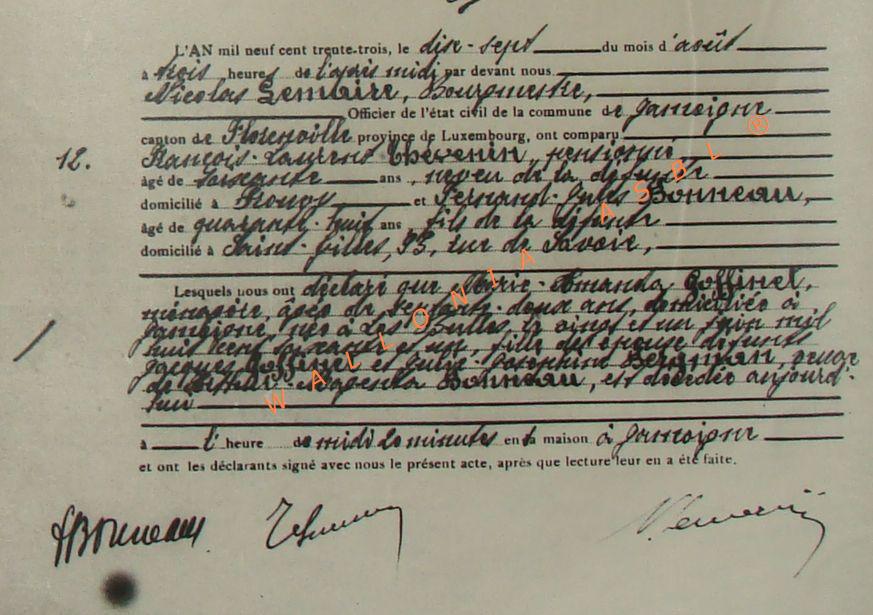 L'AN mil neuf cent trente-trois, le dix-sept du mois d'août
à trois heures de l'après midi par devant nous
Nicolas Lemaire, Bourgmestre,
Officier de l'état civil de la commune de Jamoigne
canton de Florenville province de Luxembourg, ont comparu
12. François-Laurent Thévenin, pensionné
âgé de soixante ans, neveu de la défunte
domicilié à et Fernand-Jules Bonneau,
âgé de quarante-huit ans, fils de la défunte
domicilié à Saint-Gilles, 93, rue de Savoie,
Lesquels nous ont déclaré que Marie-Amanda Goffinet,
ménagère, âgée de septante-deux ans, domiciliée à
Jamoigne, née à Les Bulles, le vingt et un juin mil
huit cent soixante et un, fille des époux défunts
Jacques Goffinet et Julie-Joséphine Bergman, veuve
de Magenta Bonneau, est décédée aujourd'-
hui
à l'heure de midi 20 minutes en sa maison à Jamoigne
et ont les déclarants signé avec nous le présent acte, après que lecture leur en a été faite.
FBonneau
WALLONIA ASBL ®